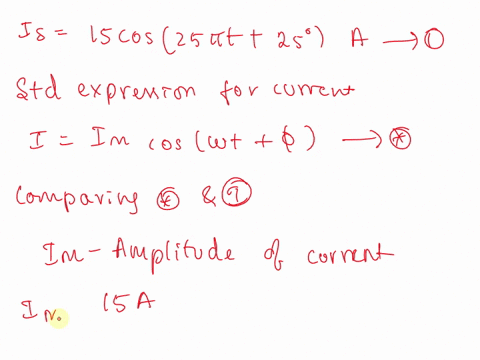 Is = 15 cos (25πt + 25°) A → ①
Std expression for current
I = Im cos (ωt + ϕ) → ⊛
Comparing ⊛ & ①
Im - Amplitude of current
Im 15 A